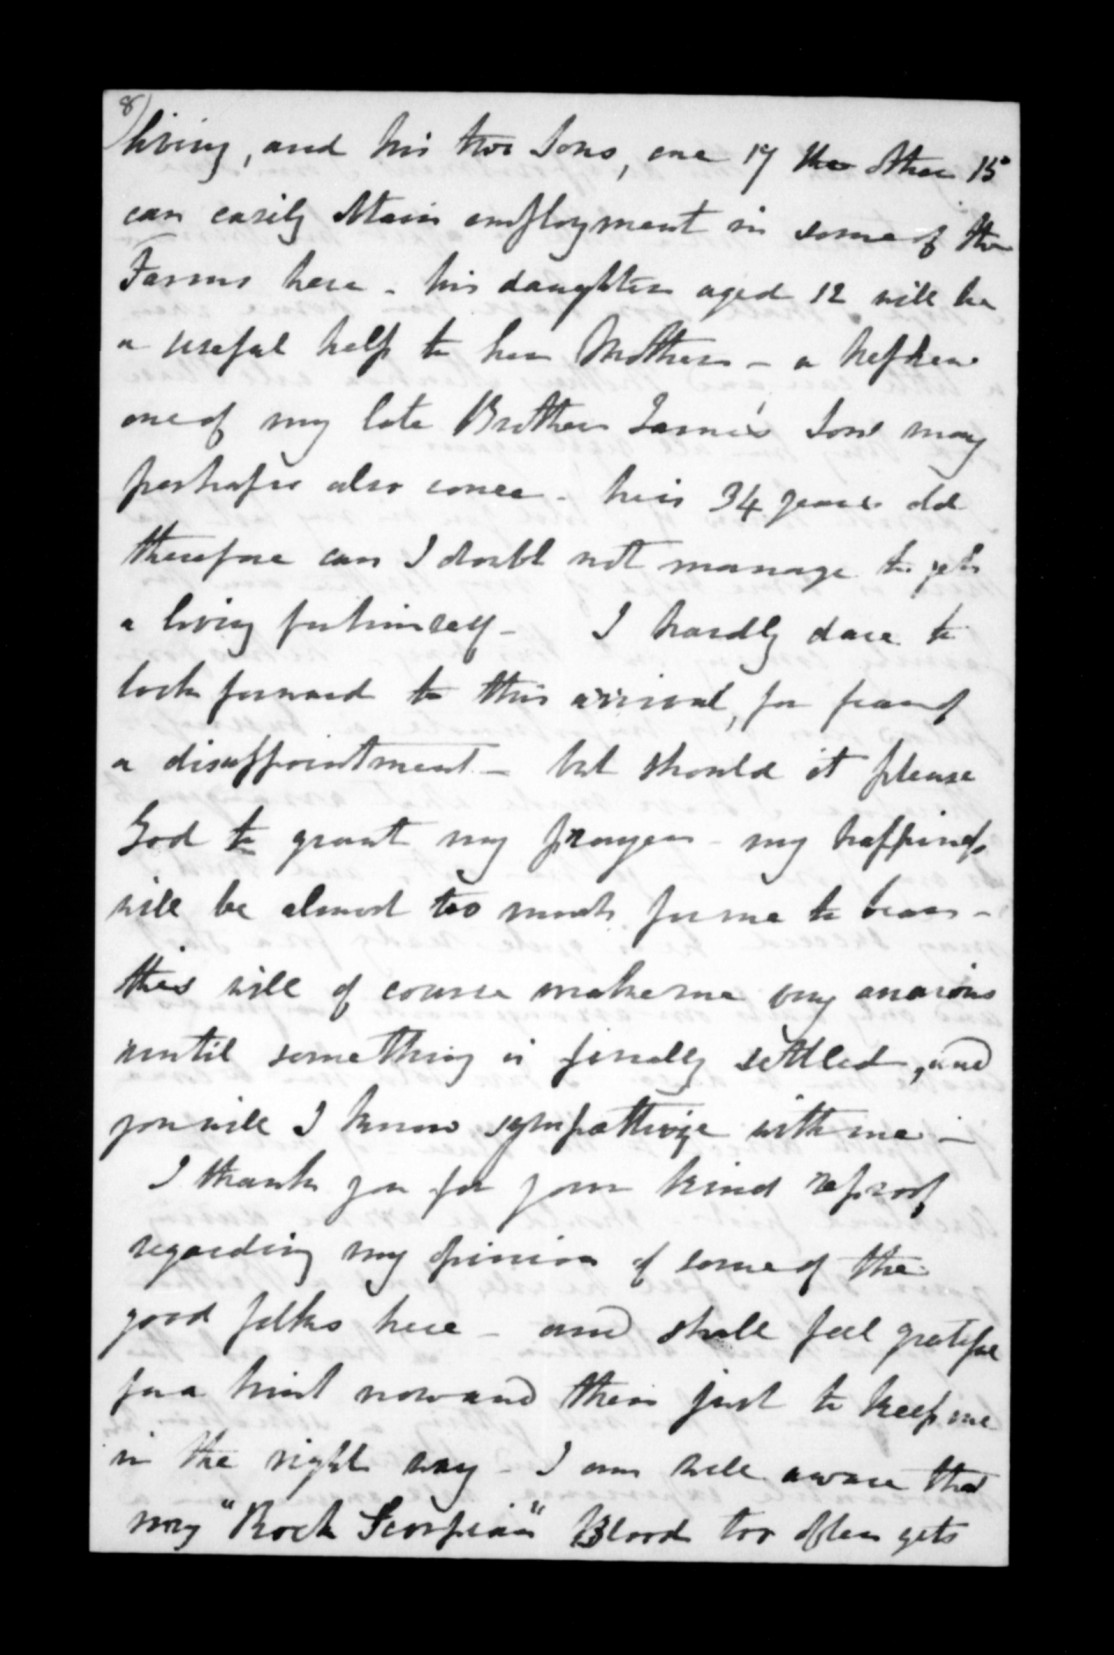 8)
living, and his two Sons, one 17 the other 15
can easily obtain employment in some of the
Farms here - his daughter aged 12 will be
a useful help to her Mother - a nephew
one of my late Brother James's Sons may
perhaps also come - he is 34 years old
therefore can I doubt not manage to get
a living for himself - I hardly dare to
look forward to this arrival, for fear of
a disappointment - but should it please
God to grant my prayer - my happiness
will be almost too much for me to bear -
this will of course make me very anxious
until something is finally settled, and
you will I know sympathize with me -
I thank you for your kind reproof
regarding my opinion of some of the
good folks here - and shall feel grateful
for a hint now and then just to keep me
in the right way - I am well aware that
my "Rock Scorpian" Blood too often gets